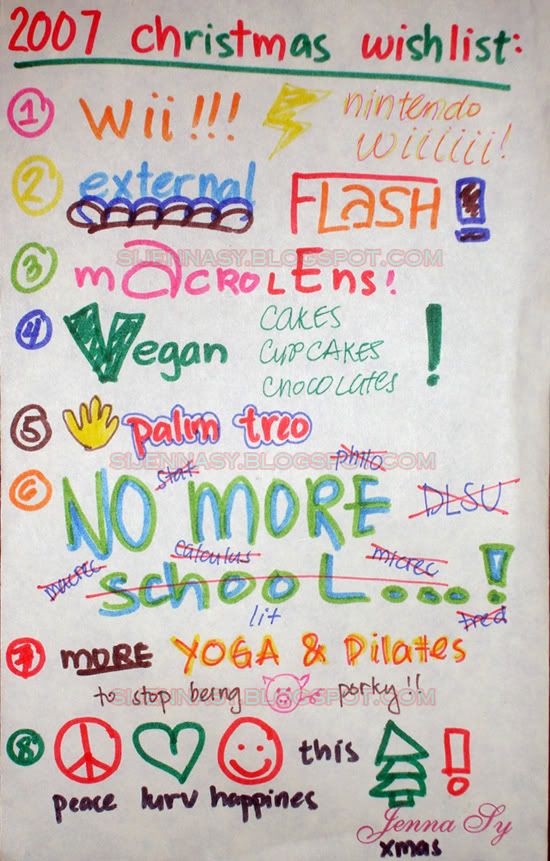 2007 christmas wishlist:
1 Wii!!! nintendo
wiiiiii!
2 external FLASH!
SIJENNASY.BLOGSPOT.COM
3 mACROLEns!
4 Vegan CAKES
CUPCAKES
CHOCOLATES !
5 palm treo
SIJENNASY.BLOGSPOT.COM
stat philo
6 NO MORE DLSU
calculus micrec
macrec school...!
lit tred
7 MORE YOGA & Pilates
to stop being porky!!
SIJENNASY.BLOGSPOT.COM
8 this !
peace lurv happines
Jenna Sy
xmas